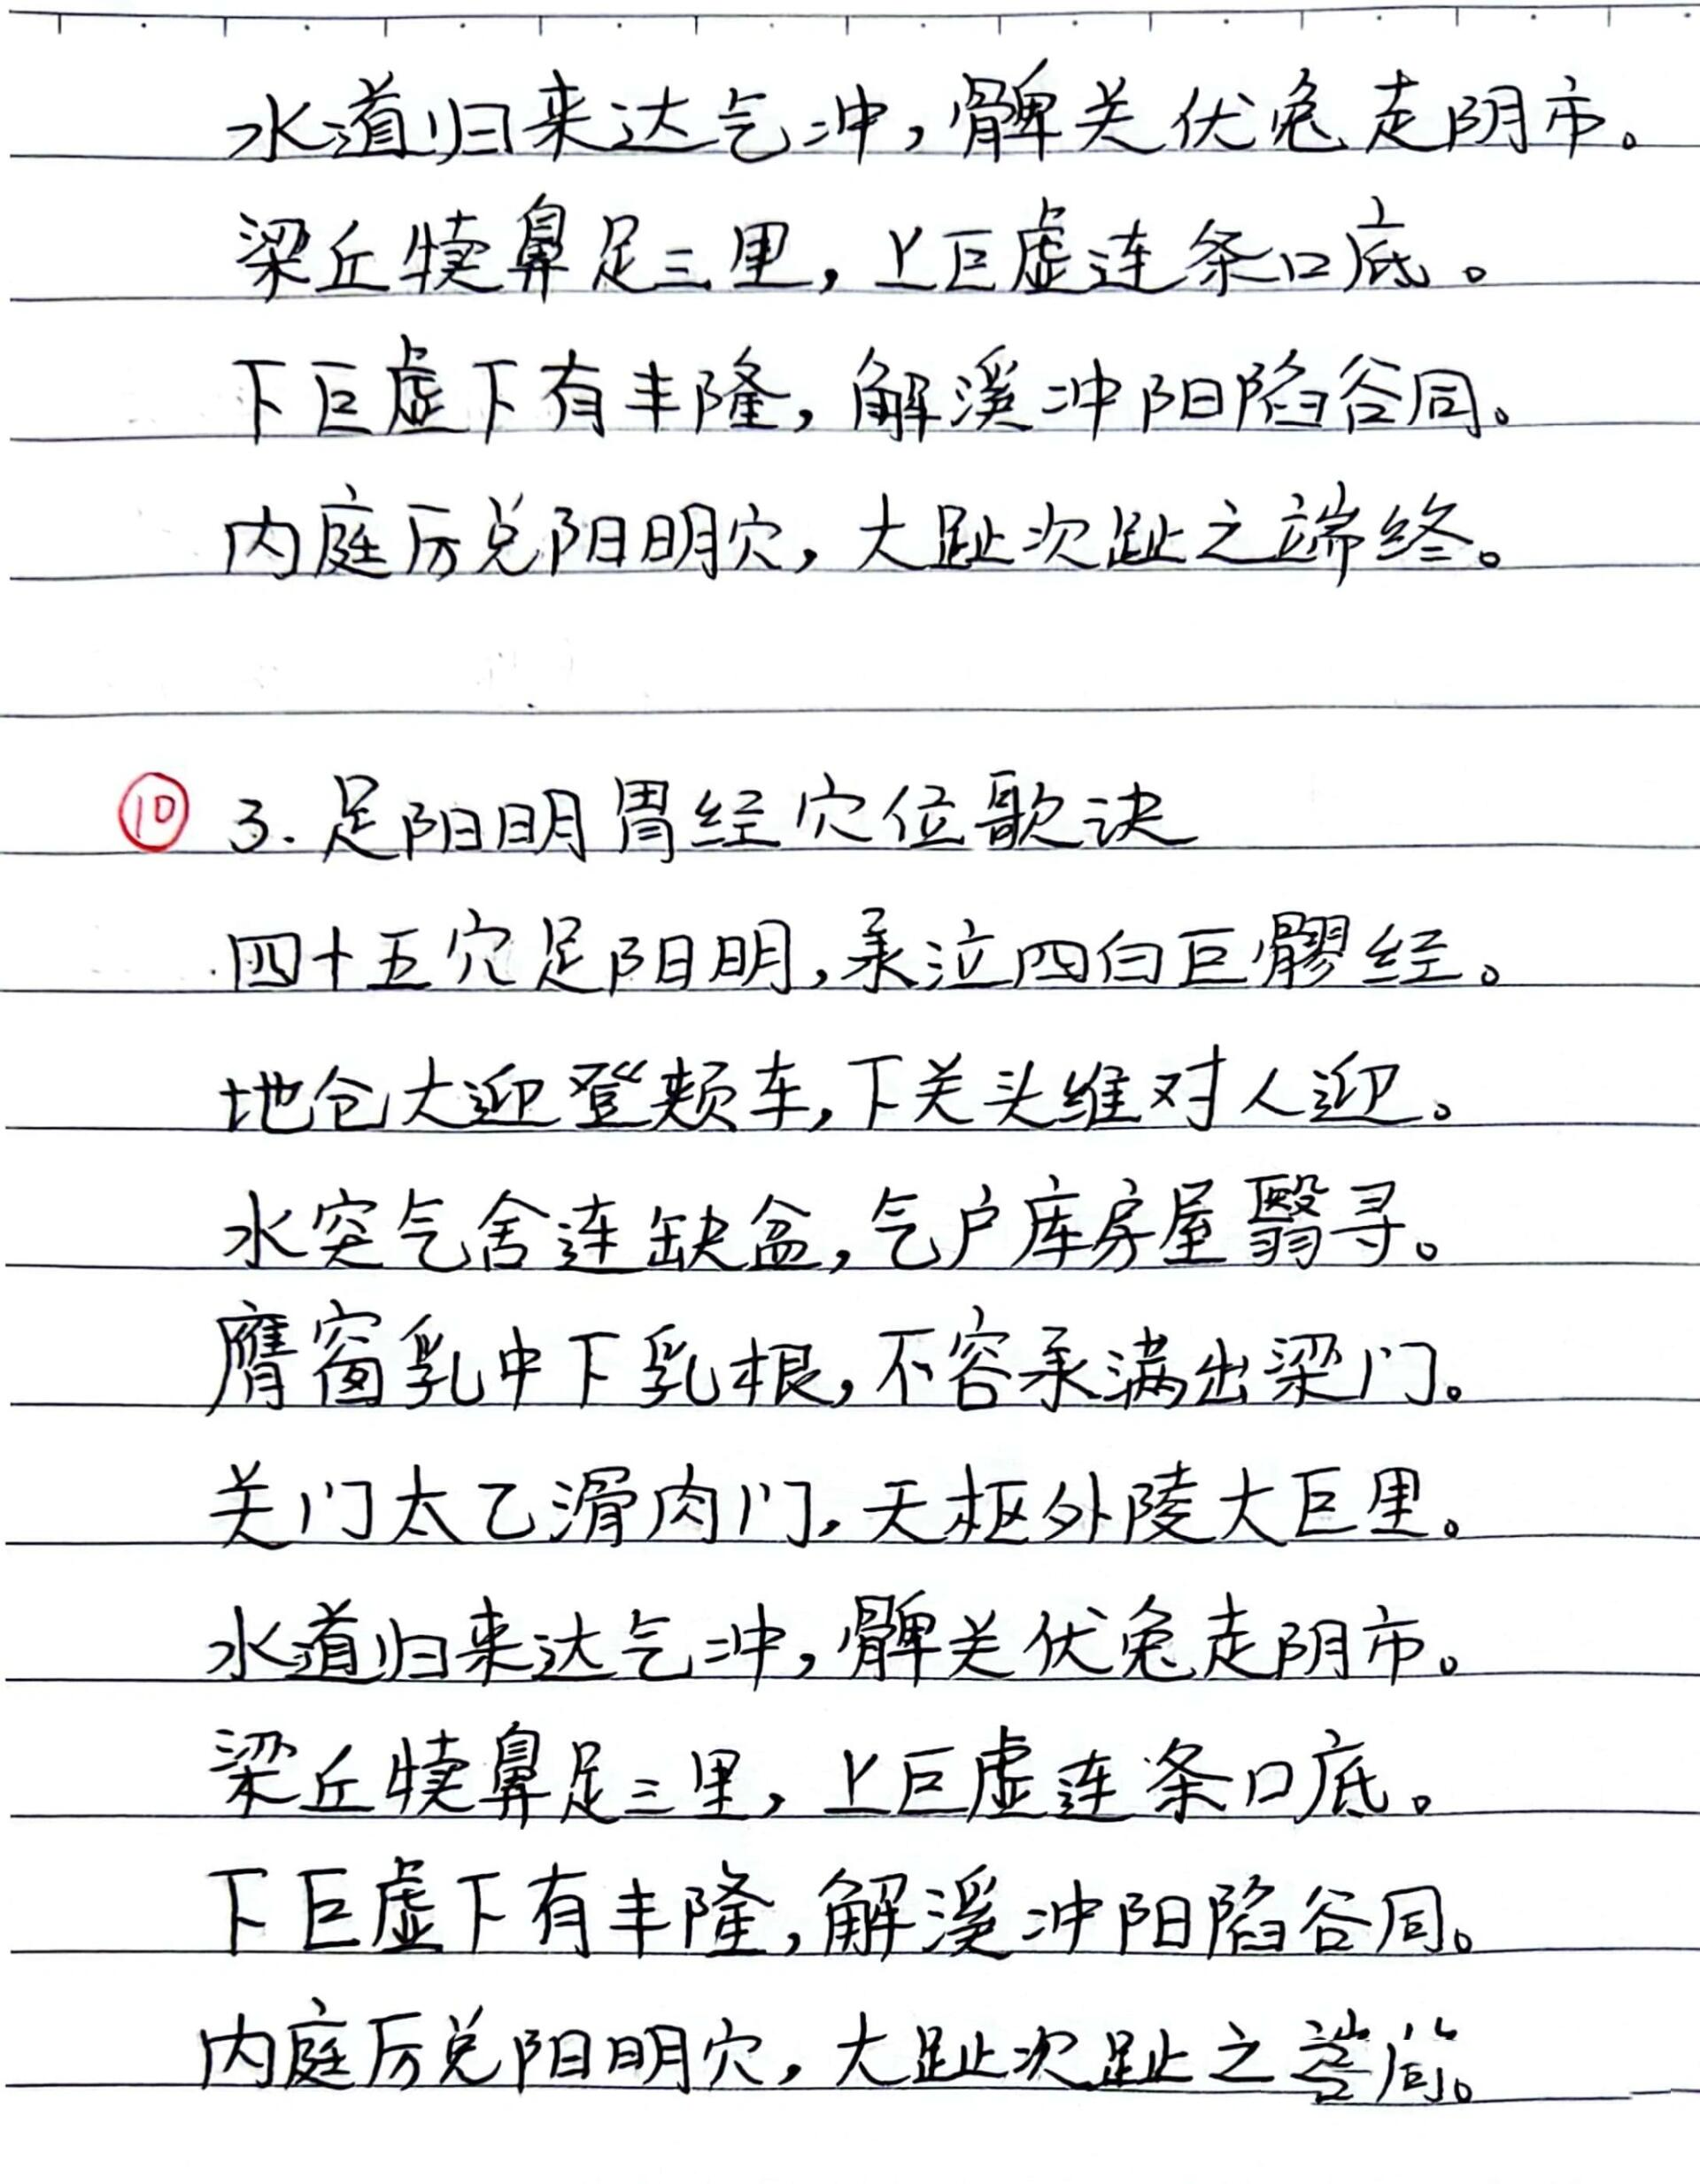 水道归来达气冲，髀关伏兔走阴市。
梁丘犊鼻足三里，上巨虚连条口底。
下巨虚下有丰隆，解溪冲阳陷谷同。
内庭厉兑阳明穴，大趾次趾之端终。
⑩ 3. 足阳明胃经穴位歌诀
四十五穴足阳明，承泣四白巨髎经。
地仓大迎登颊车，下关头维对人迎。
水突气舍连缺盆，气户库房屋翳寻。
膺窗乳中下乳根，不容承满出梁门。
关门太乙滑肉门，天枢外陵大巨里。
水道归来达气冲，髀关伏兔走阴市。
梁丘犊鼻足三里，上巨虚连条口底。
下巨虚下有丰隆，解溪冲阳陷谷同。
内庭厉兑阳明穴，大趾次趾之